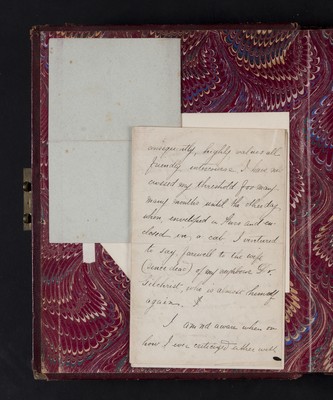 consequently, highly value all
friendly intercourse. I have not
crossed my threshold for many
many months until the other day
when enveloped in furs and en-
closed in a cab I ventured
to say farewell to the wife
(since dead) of my nephew Dr.
Gilchrist, who is almost himself
again.
I am not aware when or
how I ever criticized either with